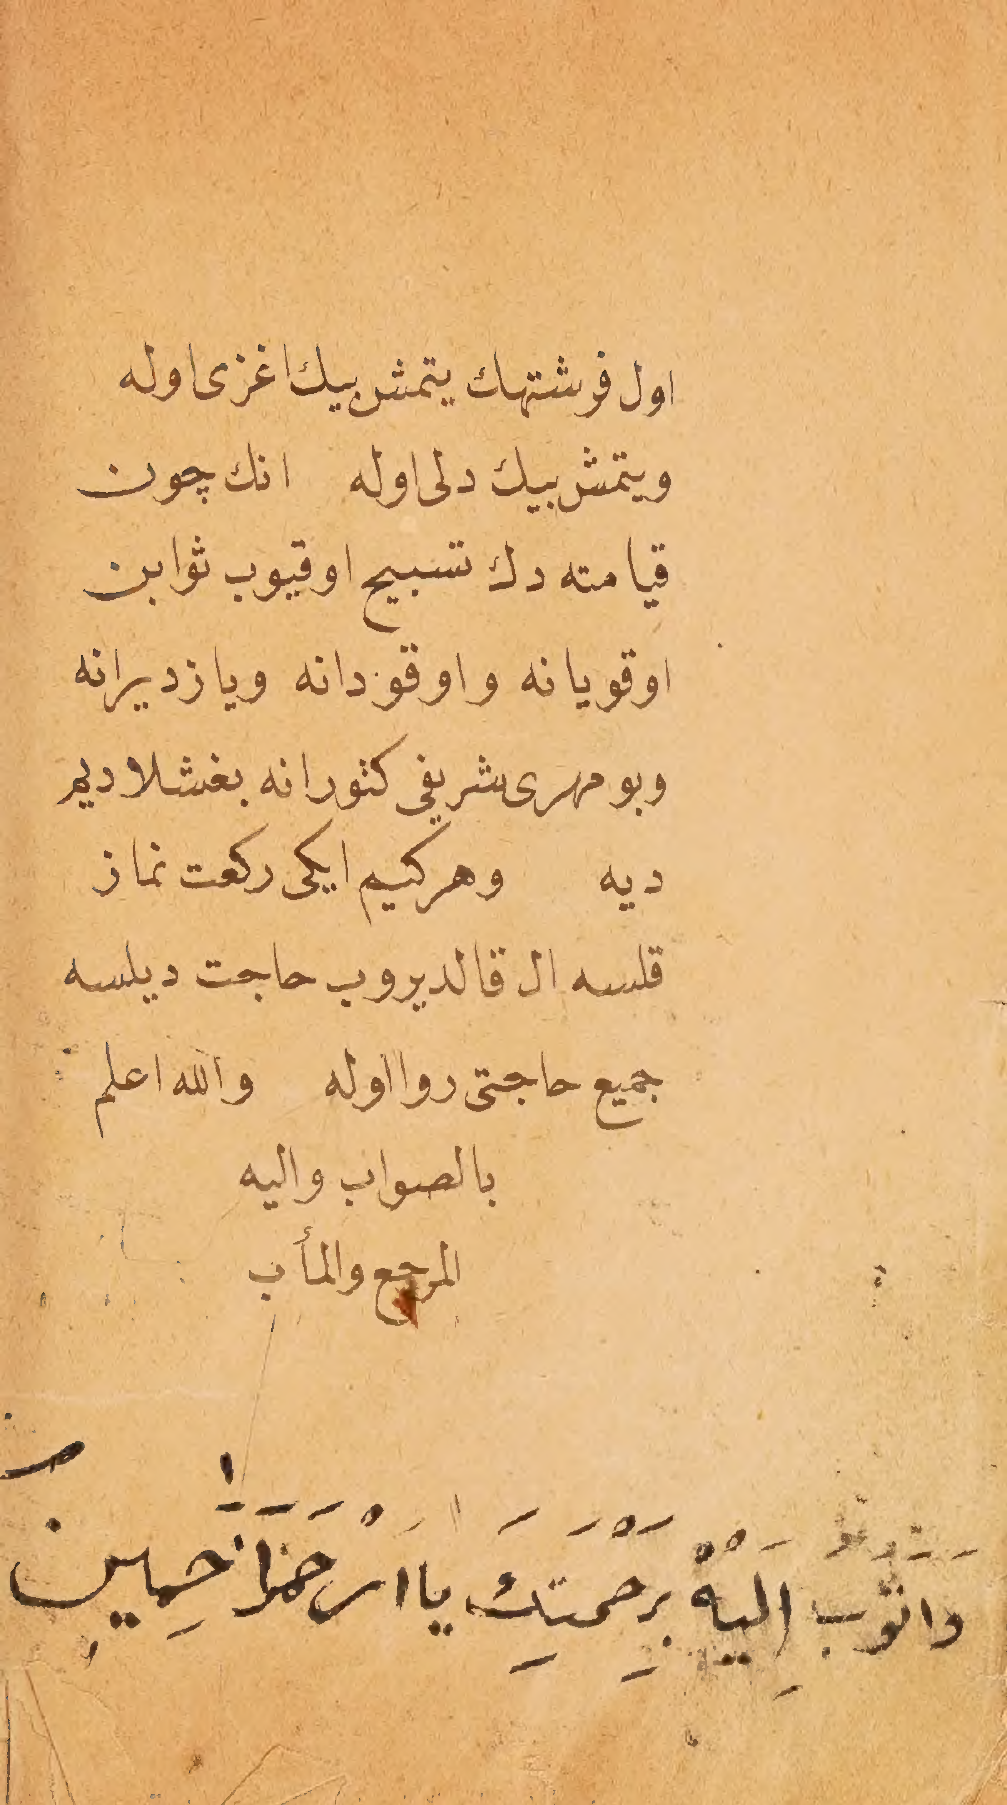 اول فرشتهنك يتمش بيك اغزى اوله
ويتمش بيك دلى اوله انك چون
قيامته دك تسبيح اوقيوب ثوابن
اوقويانه واوقودانه ويازديرانه
وبو مهرى شريفى كتورانه بغشلاديم
ديه وهركيم ايكى ركعت نماز
قلسه ال قالديروب حاجت ديلسه
جميع حاجتى روا اوله والله اعلم
بالصواب واليه
المرجع والمأب
واتوب اليه برحمتك يا ارحم الراحمين